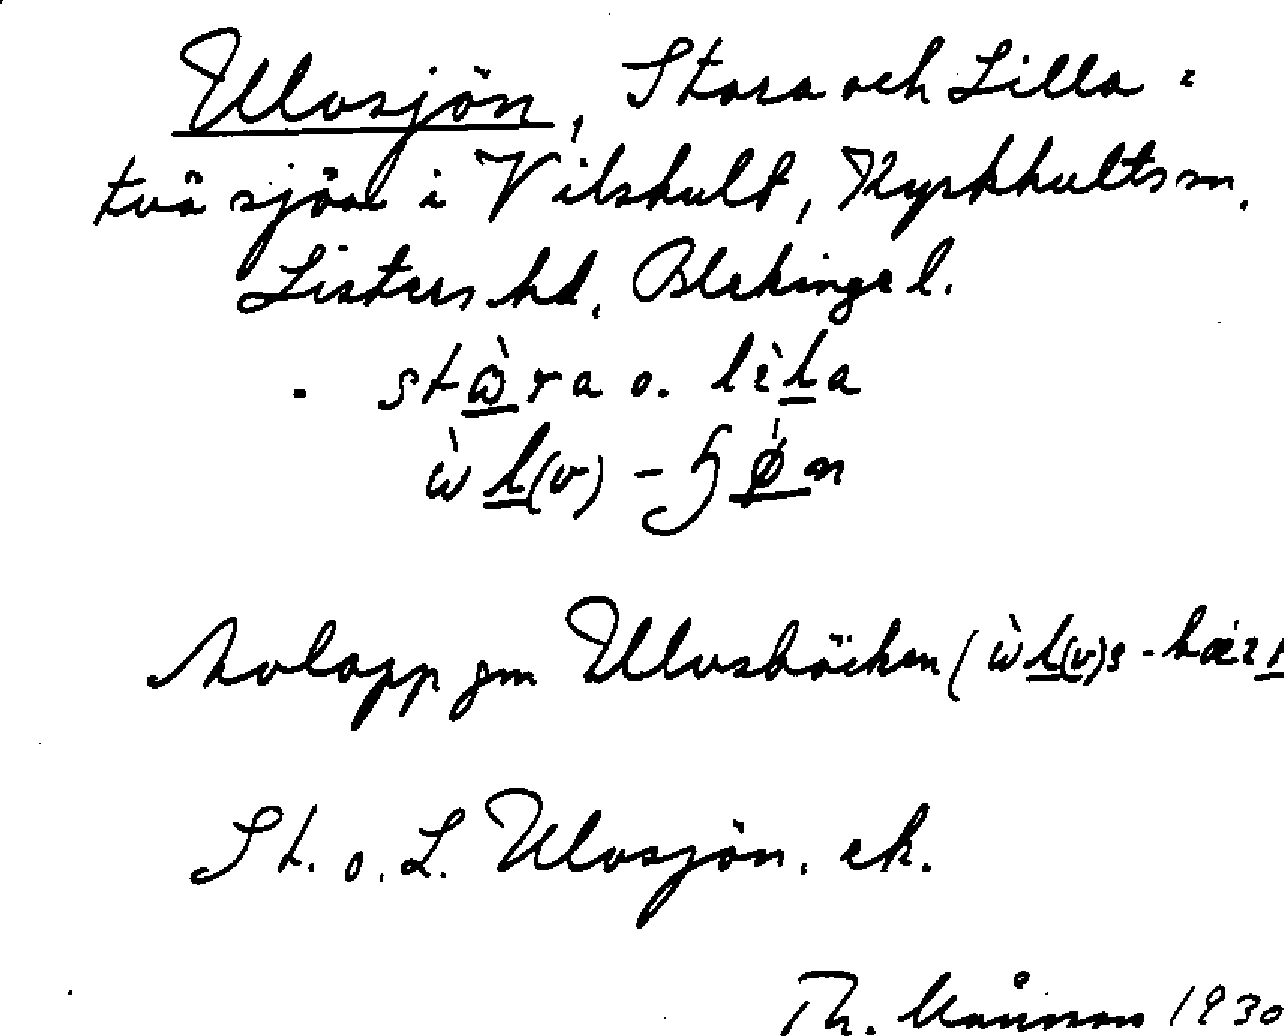 Ulvsjön, Stora och Lilla :
två sjöar i Vilshult, Kyrkhults sn,
Listers hd, Blekinge l.
stὼra o. lèla
ὼl(v) - ɧǿn
Avlopp gm Ulvsbäcken (ὼl(v)s-
St. o. L. Ulvsjön. ek.
Th. Månsson 1930